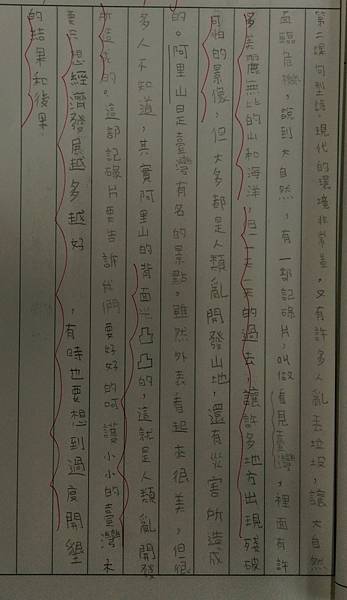 第二課句型語:現代的環境非常差,又有許多人亂丟垃圾,讓大自然
面臨危機,說到大自然,有一部記錄片,叫做看見臺灣,裡面有許
多美麗無比的山和海洋,但一天一天的過去,讓許多地方出現殘破
可怕的景像,但大多都是人類亂開發山地,還有災害所造成
的。阿里山是臺灣有名的景點。雖然外表看起來很美,但很
多人不知道,其實阿里山的背面光凸凸的,這就是人類亂開發
所造成的。這部記錄片要告訴我們要好好的呵護小小的臺灣,不
要只想經濟發展越多越好,有時也要想到過度開墾
的結果和後果